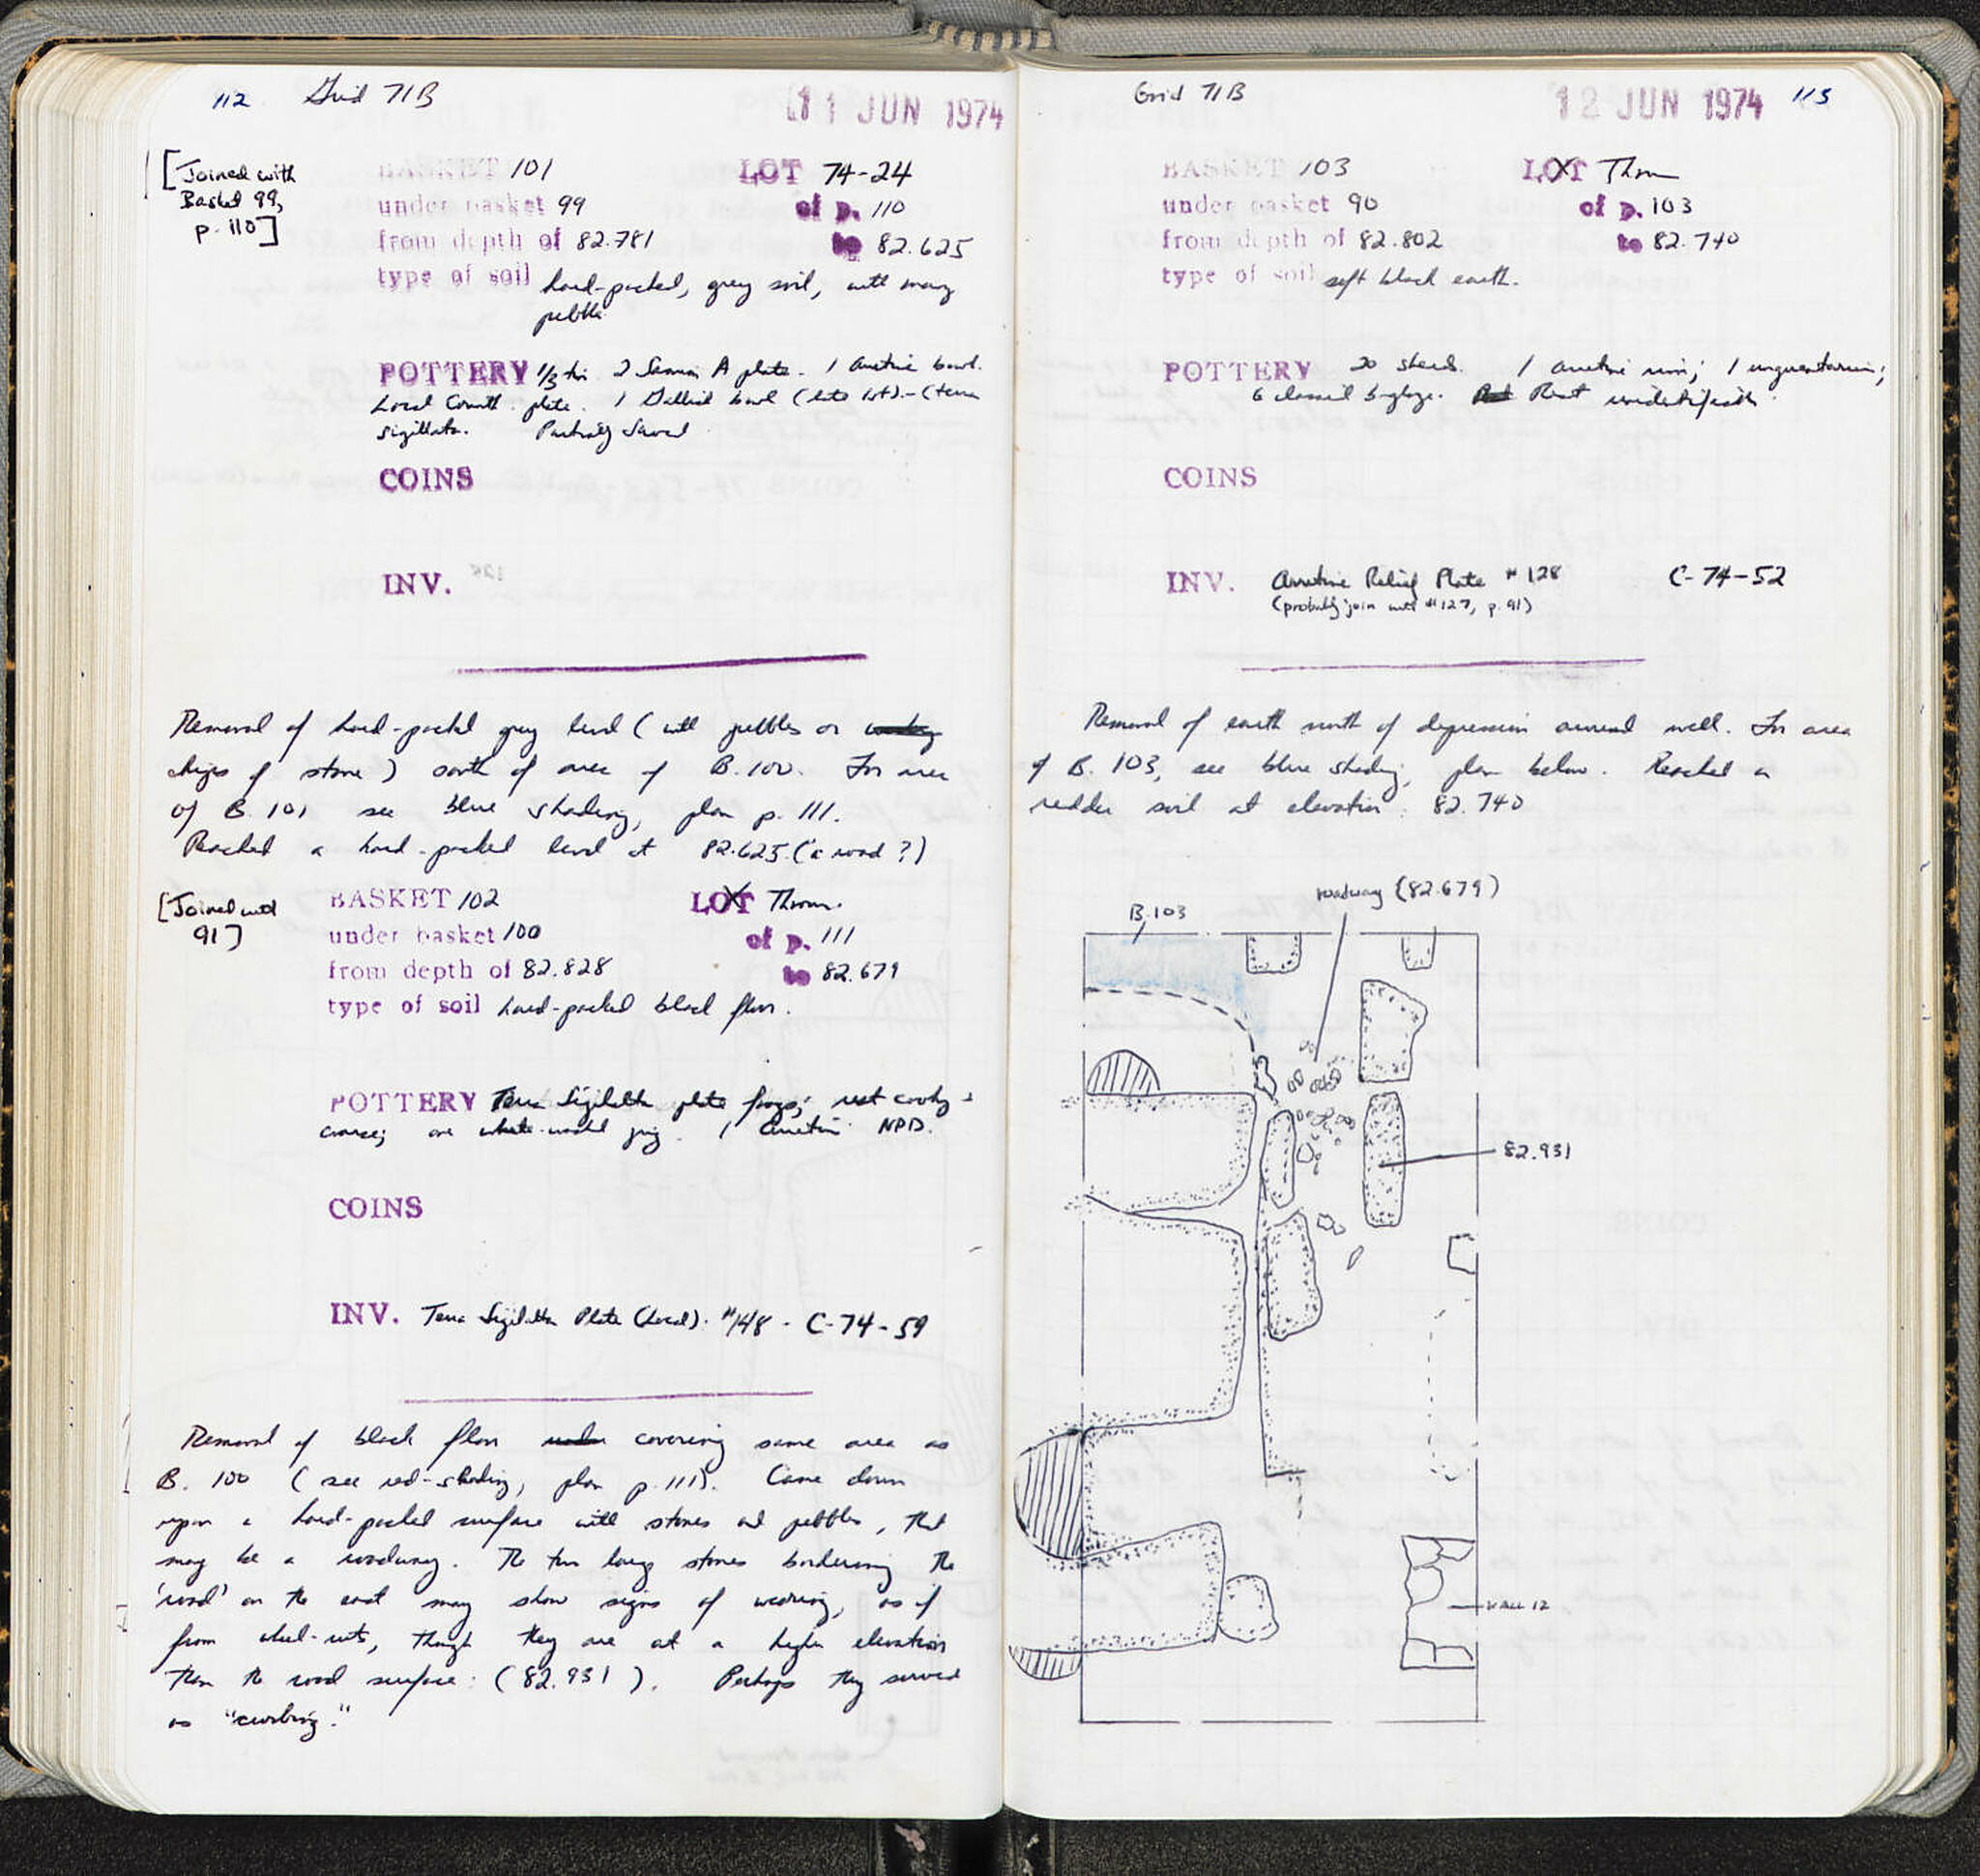 112 Grid 71B 11 JUN 1974
[Joined with
Basket 99,
p. 110]
BASKET 101 LOT 74-24
under basket 99 of p. 110
from depth of 82.781 to 82.625
type of soil hard-packed, grey soil, with many
pebbles
POTTERY 1/3 tin 2 Samian A plate. 1 Arretine bowl.
Local Corinth. plate. 1 Gallic bowl (into lot) - (terra
sigillata. Partially Saved
COINS
INV.
Removal of hard-packed grey level (with pebbles or
chips of stone) south of area of B.100. For area
of B 101 see blue shading, plan p. 111.
Reached a hard-packed level at 82.625. (a road?)
[Joined with
91]
BASKET 102 LOT Thrown.
under basket 100 of p. 111
from depth of 82.828 to 82.679
type of soil hard-packed black floor.
POTTERY Terra Sigillata plate frags; rest cooking +
coarse; one jug. 1 Arretine NPD.
COINS
INV. Terra Sigillata Plate (Local). #148 - C-74-59
Removal of black floor covering same area as
B. 100 (see red-shading, plan p. 111). Came down
upon a hard-packed surface with stones and pebbles, that
may be a roadway. The two large stones bordering the
'road' on the east may show signs of wearing, as if
from wheel-ruts, though they are at a higher elevation
than the road surface: (82.931). Perhaps they served
as "curbing."
Grid 71B 12 JUN 1974 113
BASKET 103 LOT Thrown
under basket 90 of p. 103
from depth of 82.802 to 82.740
type of soil soft black earth.
POTTERY 20 sherds. 1 arretine rim; 1 unguentarium;
6 classical b-glaze. Rest unidentifiable.
COINS
INV. Arretine Relief Plate #128 C-74-52
(probably join with #127, p. 91)
Removal of earth north of depression around well. For area
of B. 103, see blue shading, plan below. Reached a
redder soil at elevation: 82.740
roadway (82.679)
B.103
82.931
WALL 12